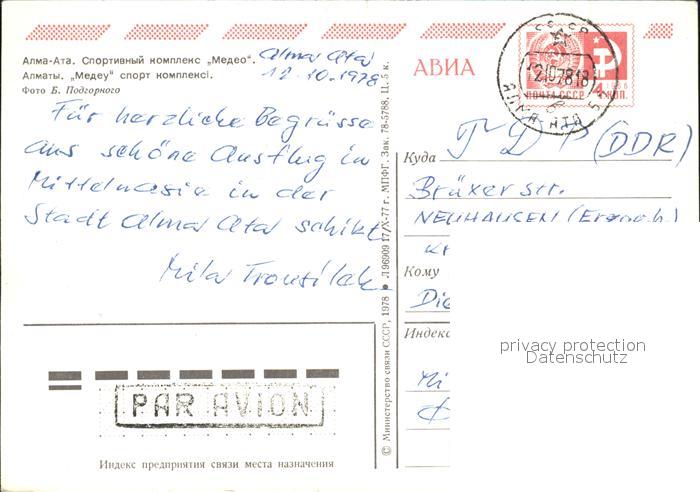 Алма-Ата. Спортивный комплекс „Медео".
Алматы. „Медеу" спорт комплексі.
Фото Б. Подгорного
Alma Ata
12.10.1978
Für herzliche Begrüsse
aus schöne Ausflug in
Mittelnasie in der
Stadt Alma Ata schikt
Mila
АВИА
СССР
2107818
АЛМА АТА
ПОЧТА СССР
4 коп.
1966
ГДР (DDR)
Куда
Brüxer str.
NEUHAUSEN
Кому
Индекс
privacy protection
Datenschutz
PAR AVION
Индекс предприятия связи места назначения
© Министерство связи СССР, 1978 ● Л 96909 17/X-77 г. МПФГ. Зак. 78-5788. Ц. 5 к.